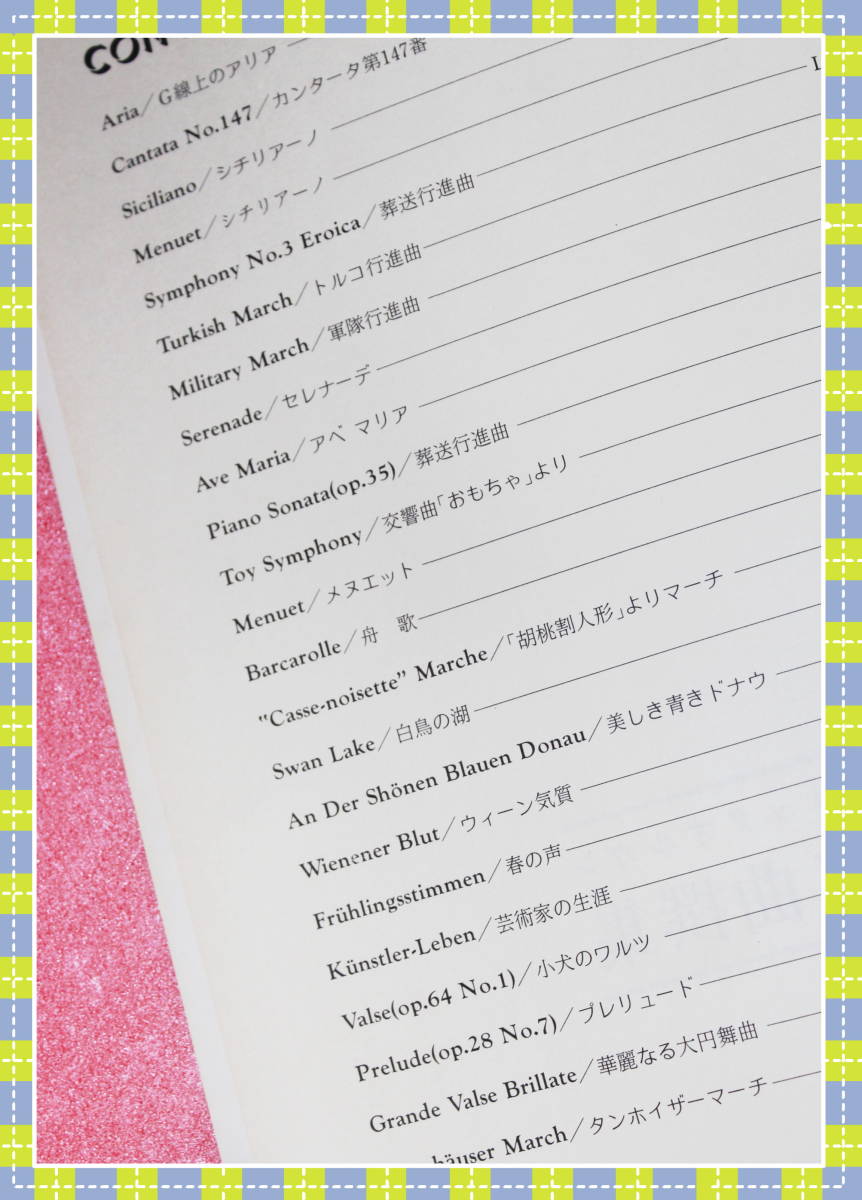 CON
Aria／G線上のアリア
Cantata No.147／カンタータ第147番
Siciliano／シチリアーノ
Menuet／シチリアーノ
Symphony No.3 Eroica／葬送行進曲
Turkish March／トルコ行進曲
Military March／軍隊行進曲
Serenade／セレナーデ
Ave Maria／アベ マリア
Piano Sonata(op.35)／葬送行進曲
Toy Symphony／交響曲「おもちゃ」より
Menuet／メヌエット
Barcarolle／舟　歌
"Casse-noisette" Marche／「胡桃割人形」よりマーチ
Swan Lake／白鳥の湖
An Der Shönen Blauen Donau／美しき青きドナウ
Wienener Blut／ウィーン気質
Frühlingsstimmen／春の声
Künstler-Leben／芸術家の生涯
Valse(op.64 No.1)／小犬のワルツ
Prelude(op.28 No.7)／プレリュード
Grande Valse Brillate／華麗なる大円舞曲
häuser March／タンホイザーマーチ